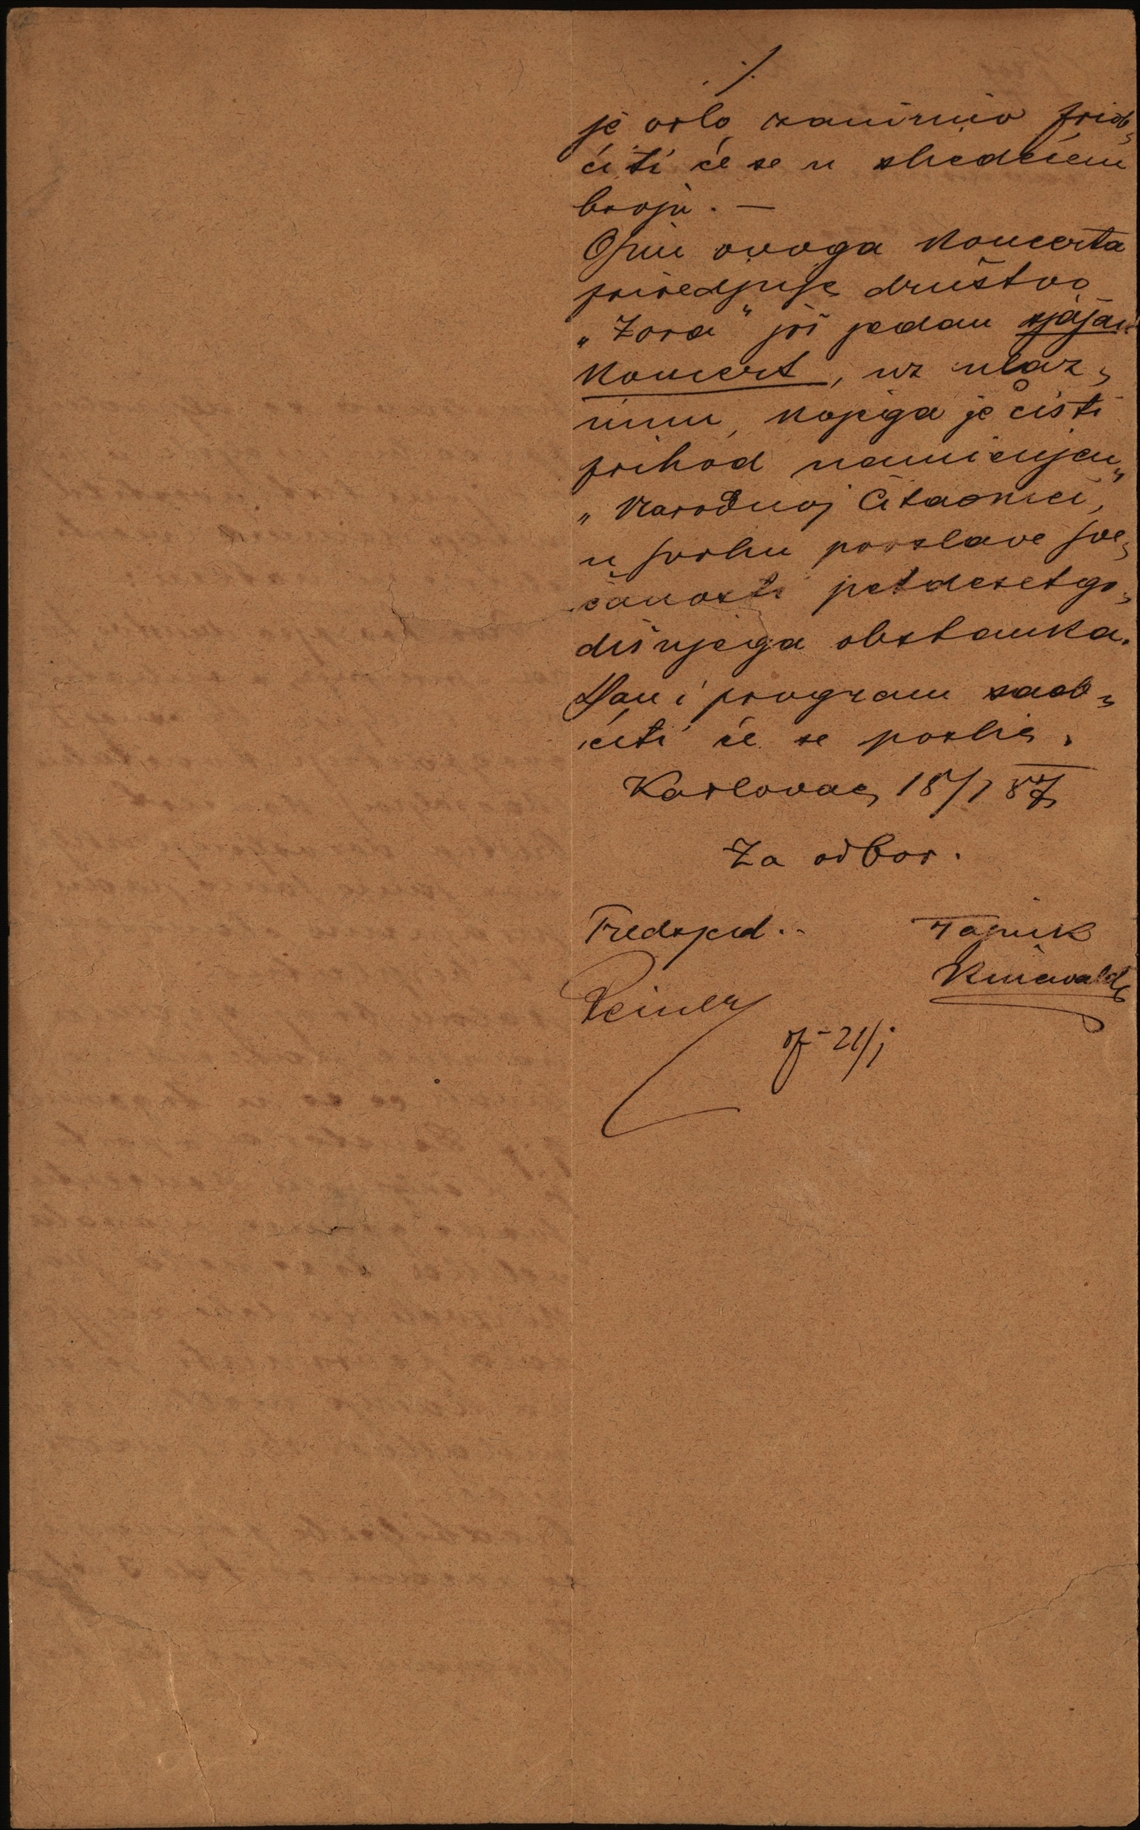 ./.
je vrlo zanimivo priob-
ćiti će se u sliedećem
broju. —
Osim ovoga koncerta
priredjuje društvo
„Zora" još jedan sjajan
koncert, uz ulaz-
ninu, kojega je čisti
prihod namienjen
„Narodnoj Čitaonici",
u svrhu proslave sve-
čanosti petdesetgo-
dišnjega obstanka.
Dan i program saob-
ćiti će se poslie.
Karlovac, 18/1 87
Za odbor.
Predsjed.. Tajnik
Reiner
21/1